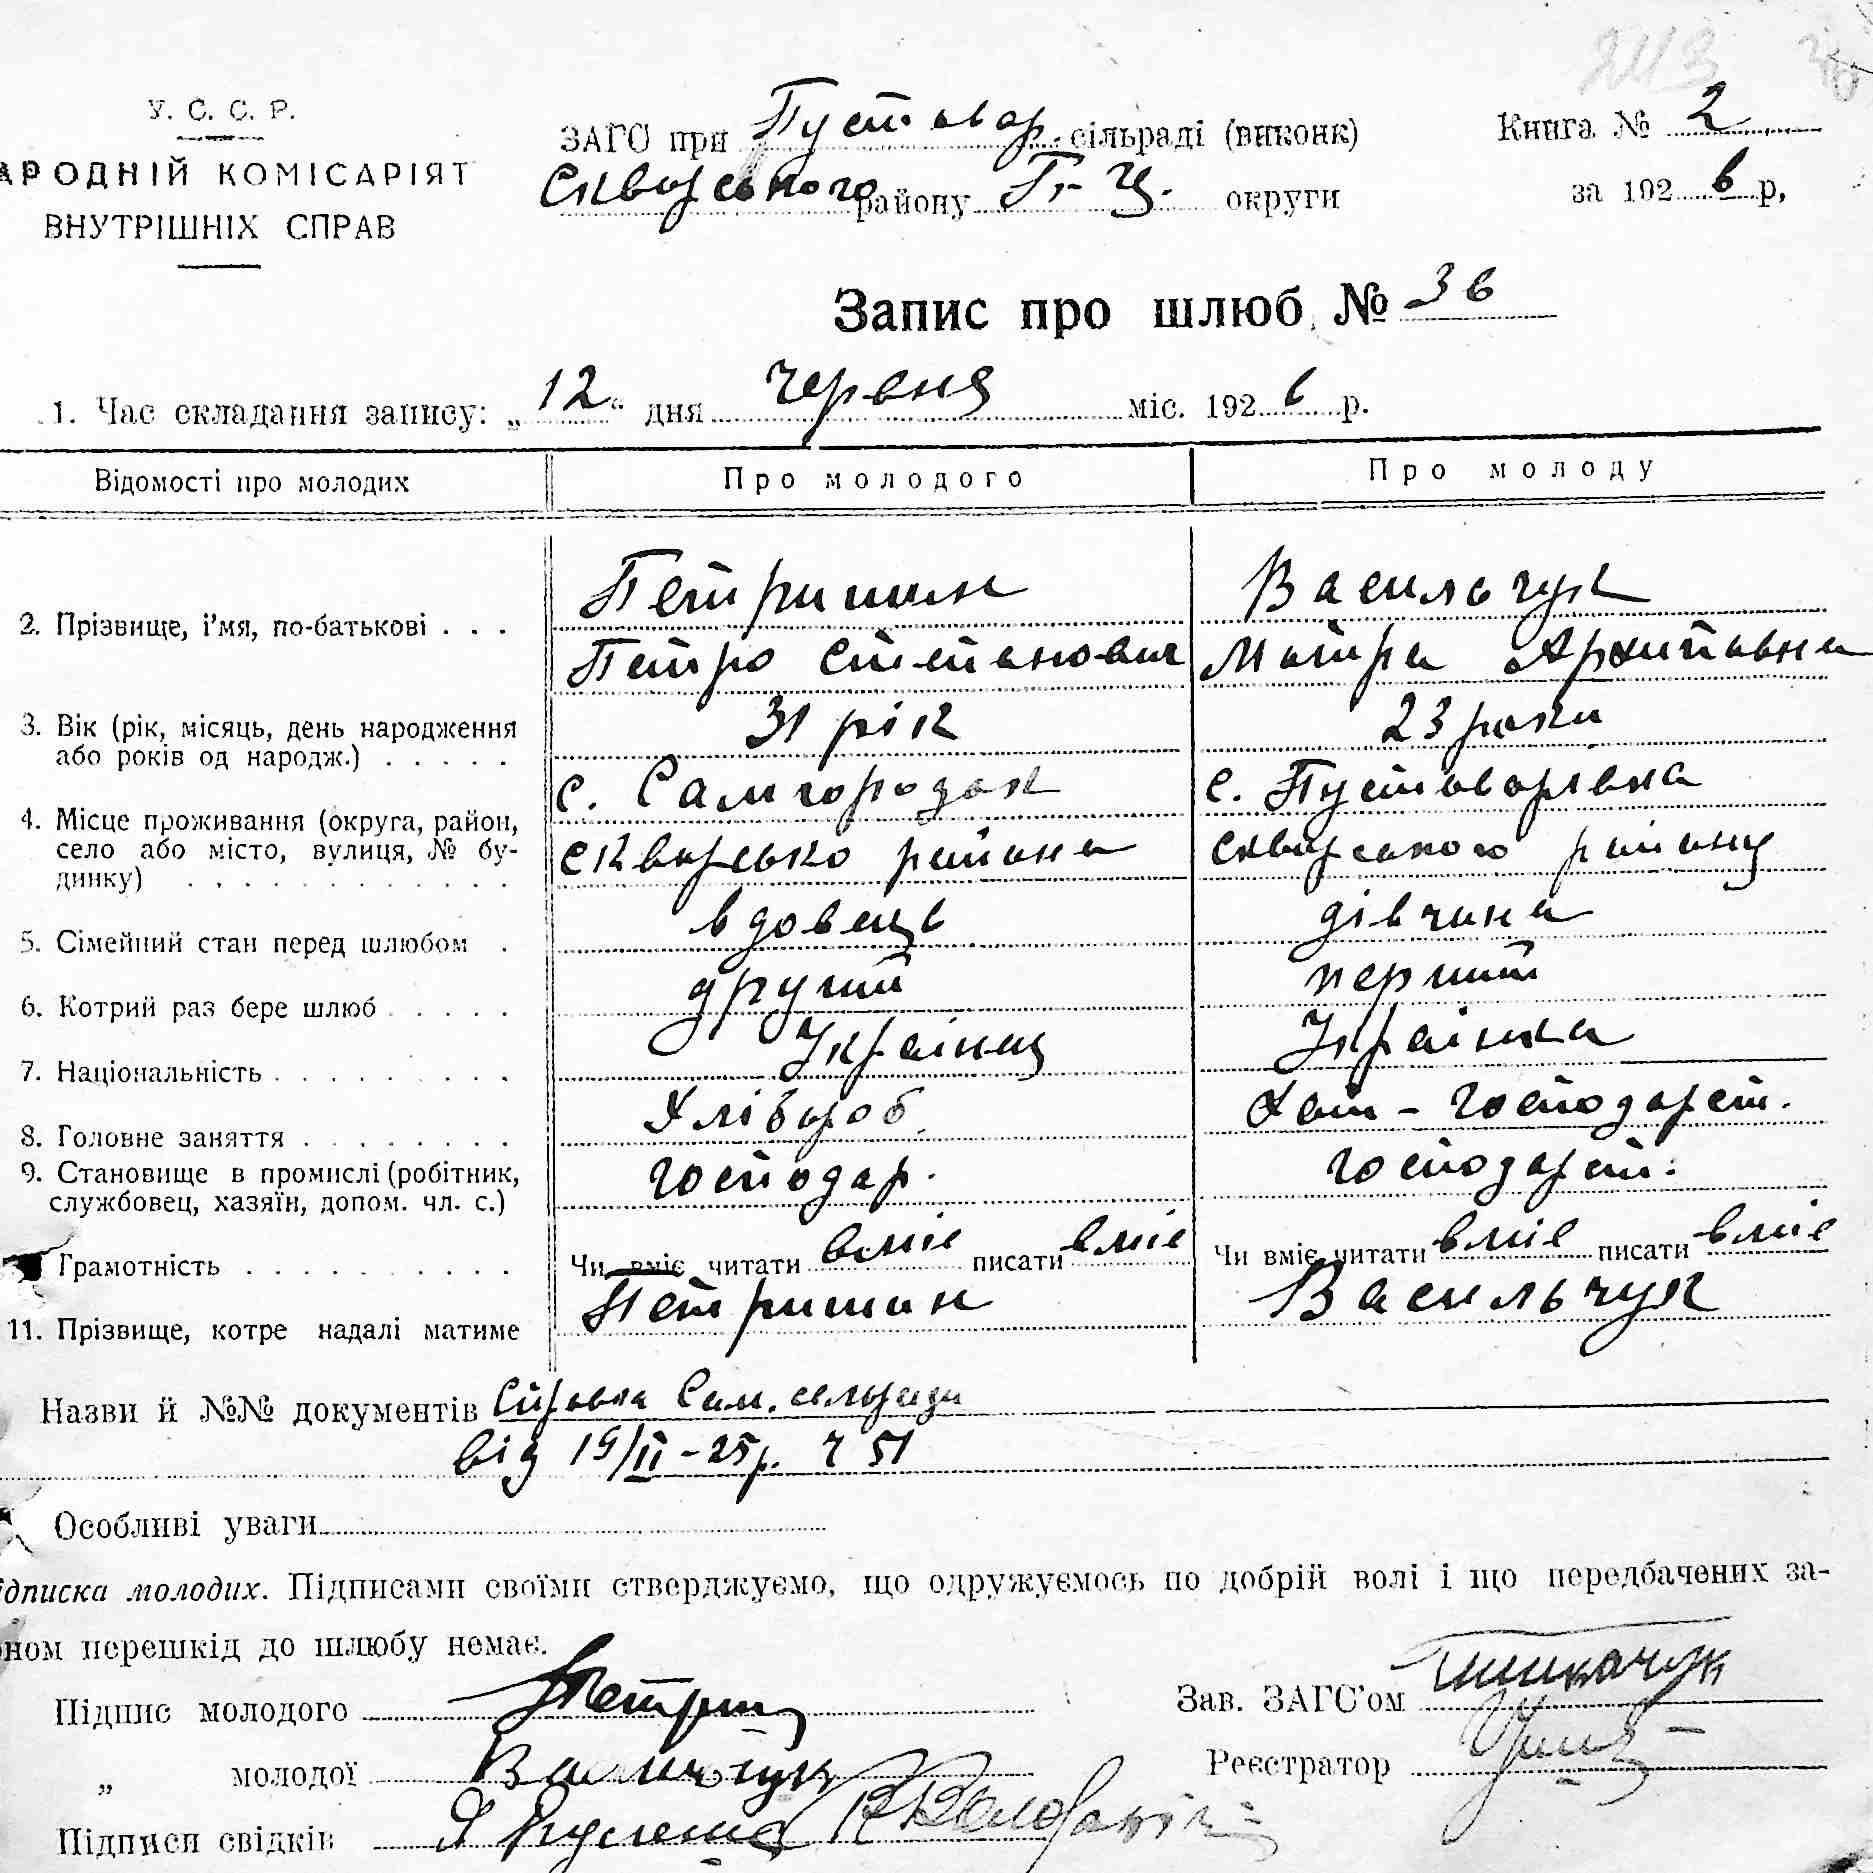 243
У. С. С. Р.
АРОДНІЙ КОМІСАРІЯТ
ВНУТРІШНІХ СПРАВ
ЗАГС при Пустовар. сільраді (виконк)
Сквирського району Б-Ц. округи
Книга № 2
за 1926 р,
Запис про шлюб № 36
1. Час складання запису: „12“ дня червня міс. 1926 р.
Відомості про молодих Про молодого Про молоду
2. Прізвище, і'мя, по-батькові . . . Петришин Васильчук
Петро Степанович Мотря Архиповна
3. Вік (рік, місяць, день народження або років од народж.) . . . . . 31 рік 23 роки
4. Місце проживання (округа, район, село або місто, вулиця, № будинку) . . . с. Самгородок с. Пустоварівка
сквирсько района сквирського району
5. Сімейний стан перед шлюбом . вдовець дівчина
6. Котрий раз бере шлюб . . . . . другий перший
7. Національність . . . . . . . . . Українец Українка
8. Головне заняття . . . . . . . . Хлібороб. Хат-господарст.
9. Становище в промислі (робітник, службовец, хазяїн, допом. чл. с.) господар. господарст.
Грамотність . . . . . . . . . . Чи вміє читати вміє писати вміє Чи вміє читати вміє писати вміє
11. Прізвище, котре надалі матиме Петришин Васильчук
Назви й №№ документів Справка Сам. сельради
від 19/II-25р. Ч 51
Особливі уваги
ідписка молодих. Підписами своїми стверджуємо, що одружуємось по добрій волі і що передбачених за-
ном перешкід до шлюбу немає.
Підпис молодого Петриш
Зав. ЗАГС'ом
„ молодої Васильчук
Реєстратор
Підписи свідків